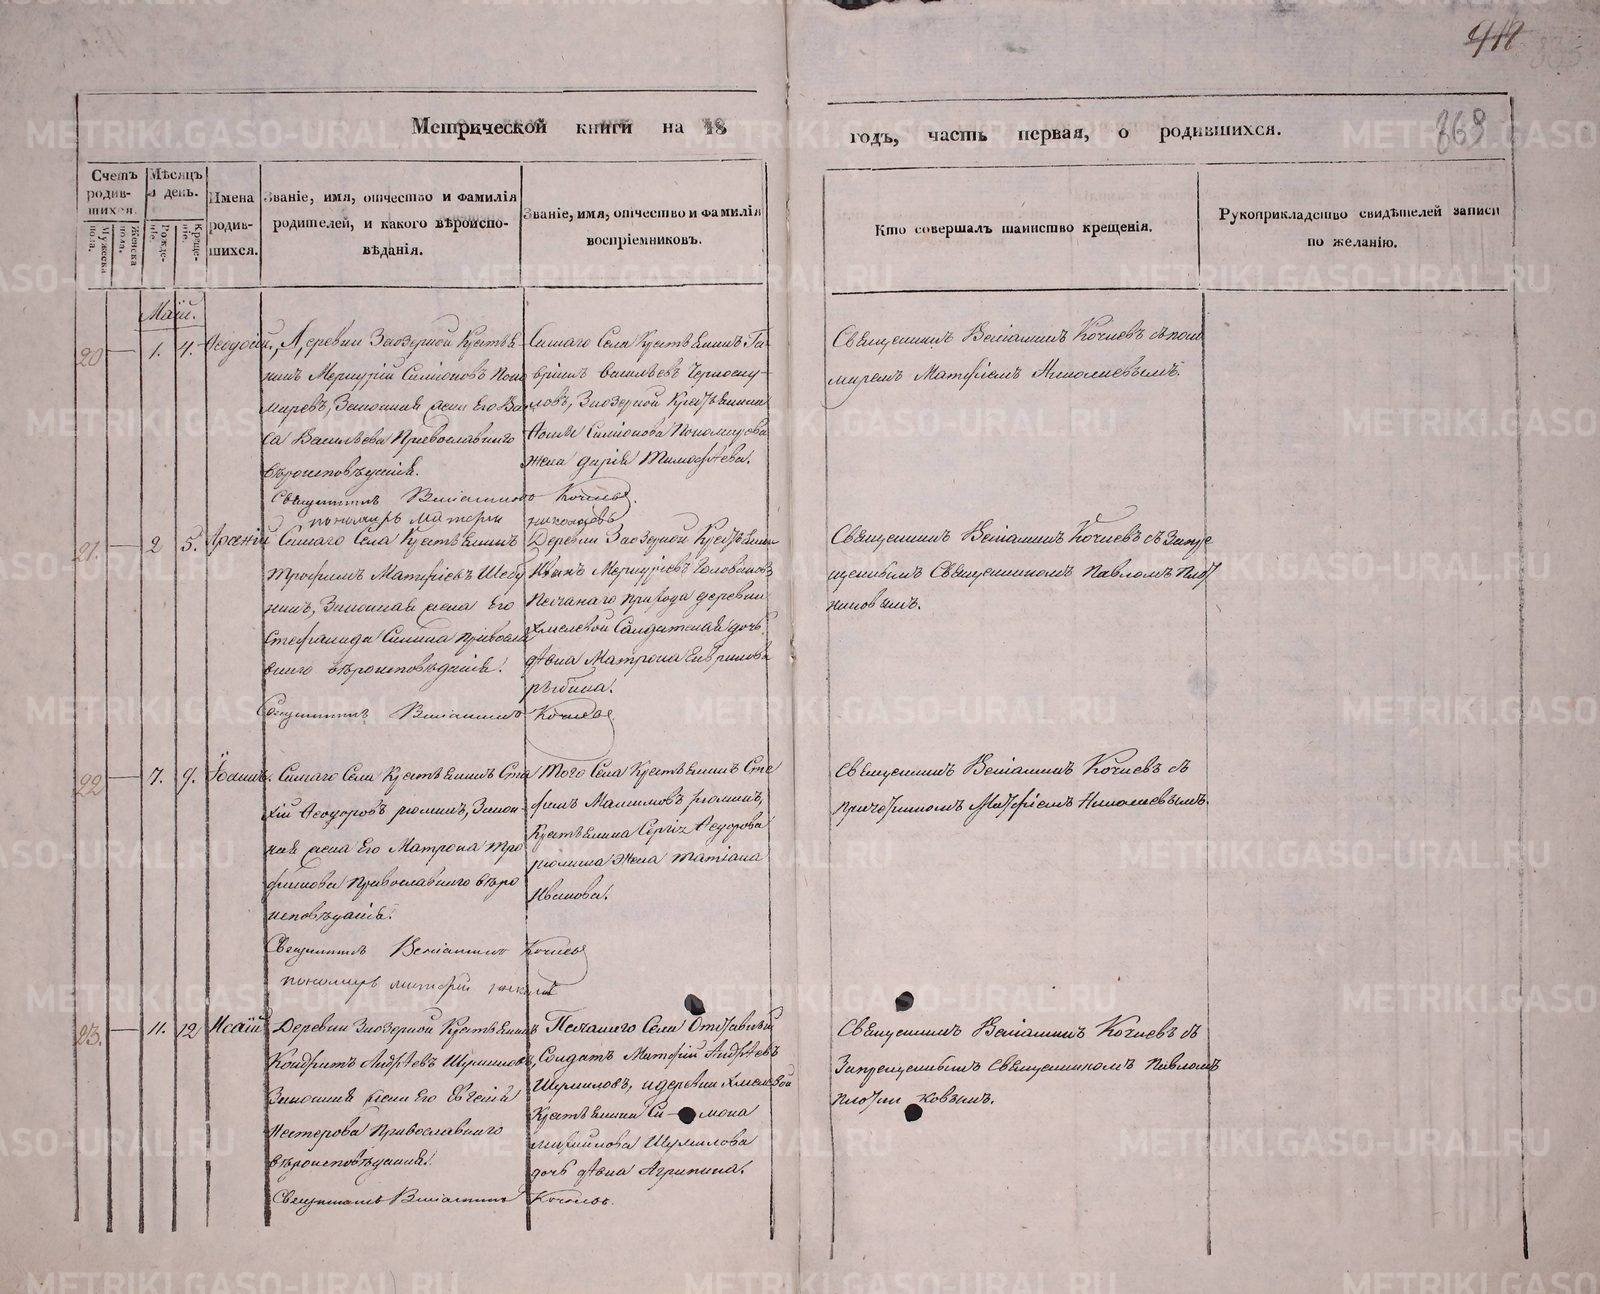 Метрической книги на 18
годъ, часть первая, о родившихся.
869
Счетъ родившихся.
Мужеска пола.
Женска пола.
Мѣсяцъ и день.
Рожденіе.
Крещеніе.
Имена родившихся.
Званіе, имя, отчество и фамилія
родителей, и какого вѣроиспо-
вѣданія.
Званіе, имя, отчество и фамилія
воспріемниковъ.
Кто совершалъ таинство крещенія.
Рукоприкладство свидѣтелей записи
по желанію.
Маій.
20 — 1. 4. Ѳеодосій.
Деревни Заозерной Крестья-
нинъ Меркурій Симіоновъ Поно
маревъ, Законная жена Его Ва
са Васильева Православнаго
вѣроисповѣданія.
Священникъ Веніаминъ Кочневъ
пономарь Матфей Николаевъ
Самаго Села Крестьянинъ Га
вріилъ Васильевъ Черноску
ловъ, Заозерной Крестьянина
Симіонова Пономарева
жена Дарія Тимофѣева.
Священникъ Веніаминъ Кочневъ съ поно
маремъ Матфіемъ Николаевымъ.
21. — 2 5. Арсеній
Самаго Села Крестьянинъ
Трофимъ Матфіевъ
Законная жена Его
Стефанида Силина Правосла
внаго вѣроисповѣданія.
Священникъ Веніаминъ Кочневъ
Деревни Заозерной Крестьянин
Иванъ Меркуріевъ Головановъ
Песчанаго прихода деревни
Хмелевой Салдатская дочь
дѣвка Матрона Гаврилова
Священникъ Веніаминъ Кочневъ съ Запре
щеннымъ Священникомъ Павломъ Плот
никовымъ.
22 — 7. 9. Іоаннъ.
Самаго Села Крестьянинъ Ста
хій Ѳеодоровъ Закон-
ная жена Его Матрона Тро
фимова Православнаго вѣро
исповѣданія.
Священникъ Веніаминъ Кочневъ
пономарь Матфей
Того Села Крестьянинъ Сте
фанъ Максимовъ
Крестьянина Сергія Ѳедорова
жена Татіана
Иванова.
Священникъ Веніаминъ Кочневъ съ
Причетникомъ Матфіемъ Николаевымъ.
23. — 11. 12. Исаій
Деревни Заозерной Крестьянинъ
Кондратъ Андрѣевъ Шумиловъ,
Законная жена Его Евгенія
Нестерова Православнаго
вѣроисповѣданія.
Священникъ Веніаминъ Кочневъ.
Песчанаго Села Отставный
Солдатъ Матфій Андрѣевъ
Шумиловъ, и деревни Хмелевой
Крестьянина Си мона
Михайлова Шумилова
дочь дѣвка Агрипина.
Священникъ Веніаминъ Кочневъ съ
Запрещеннымъ Священникомъ Павломъ
Плотни ковымъ.
METRIKI.GASO-URAL.RU